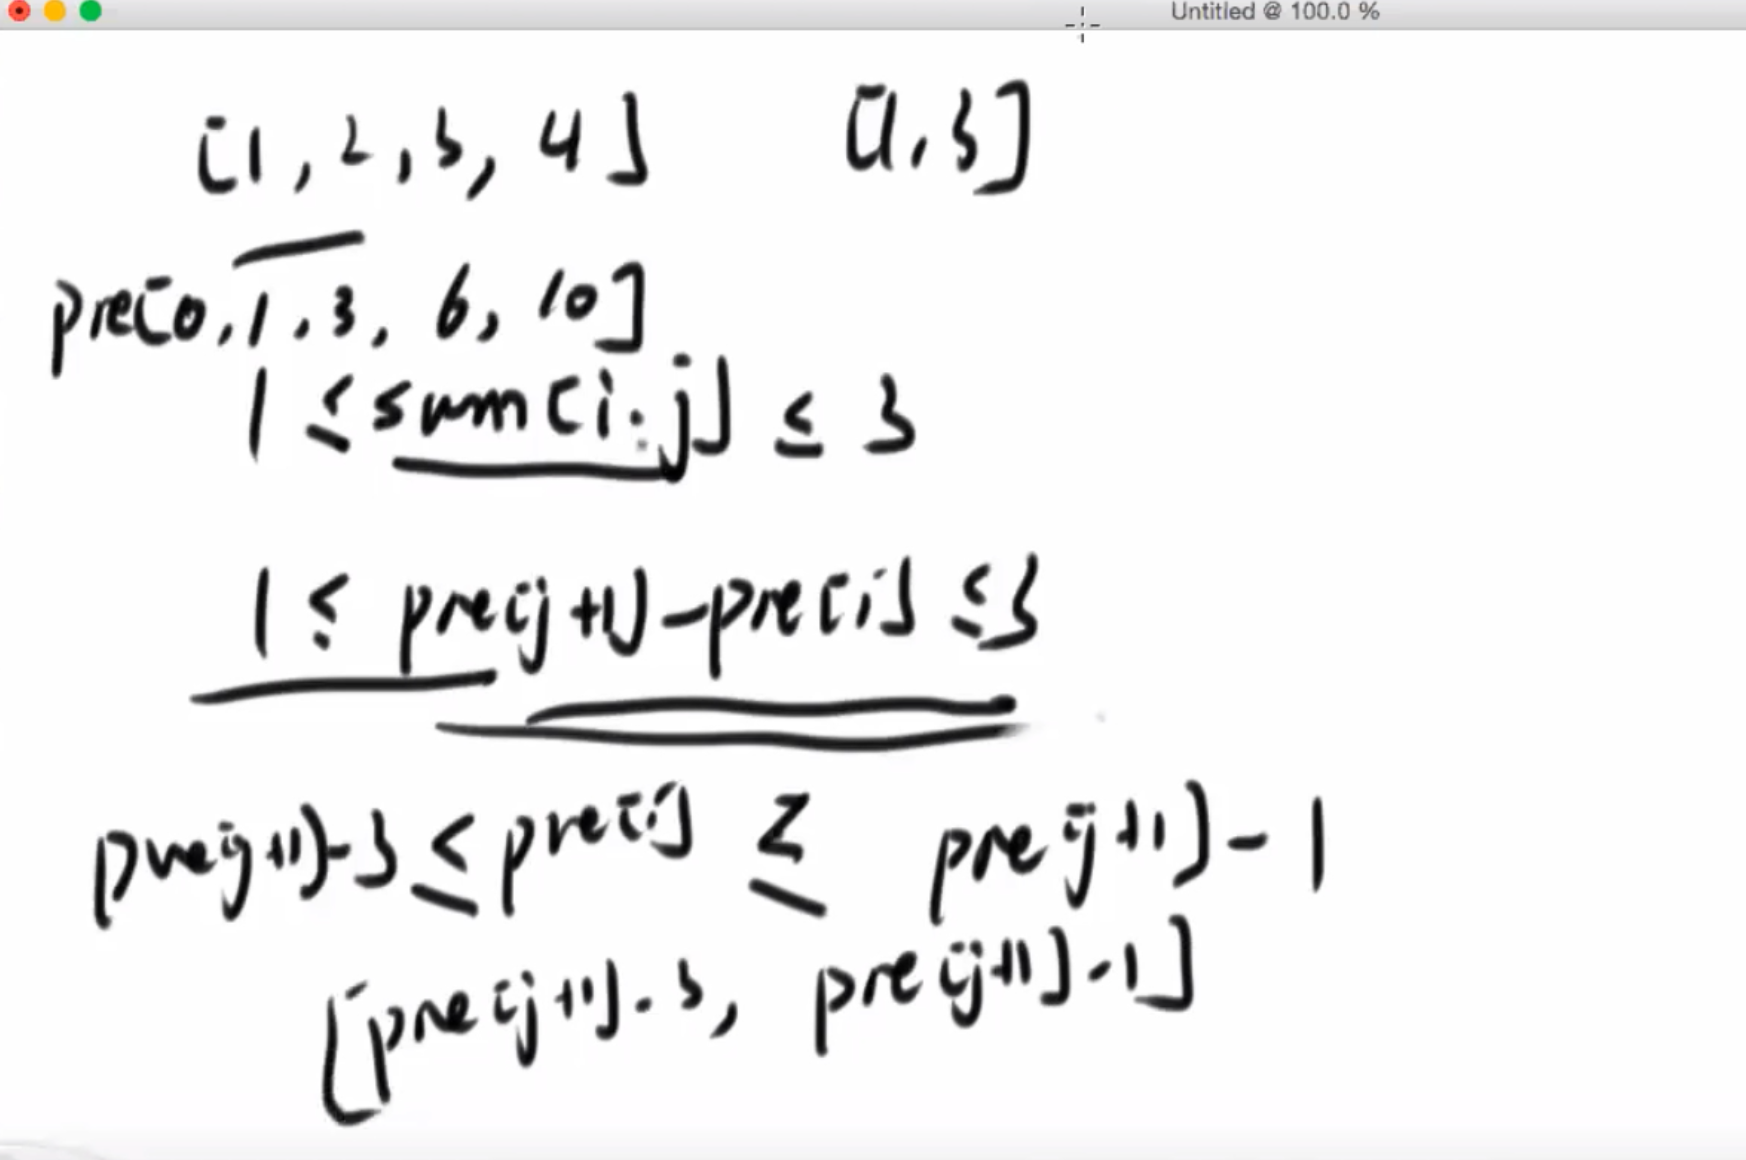 Untitled @ 100.0 %
[1, 2, 3, 4] [1, 3]
pre[0, 1, 3, 6, 10]
1 ≤ sum[i:j] ≤ 3
1 ≤ pre[j+1] - pre[i] ≤ 3
pre[j+1] - 3 ≤ pre[i] ≤ pre[j+1] - 1
[pre[j+1] - 3, pre[j+1] - 1]